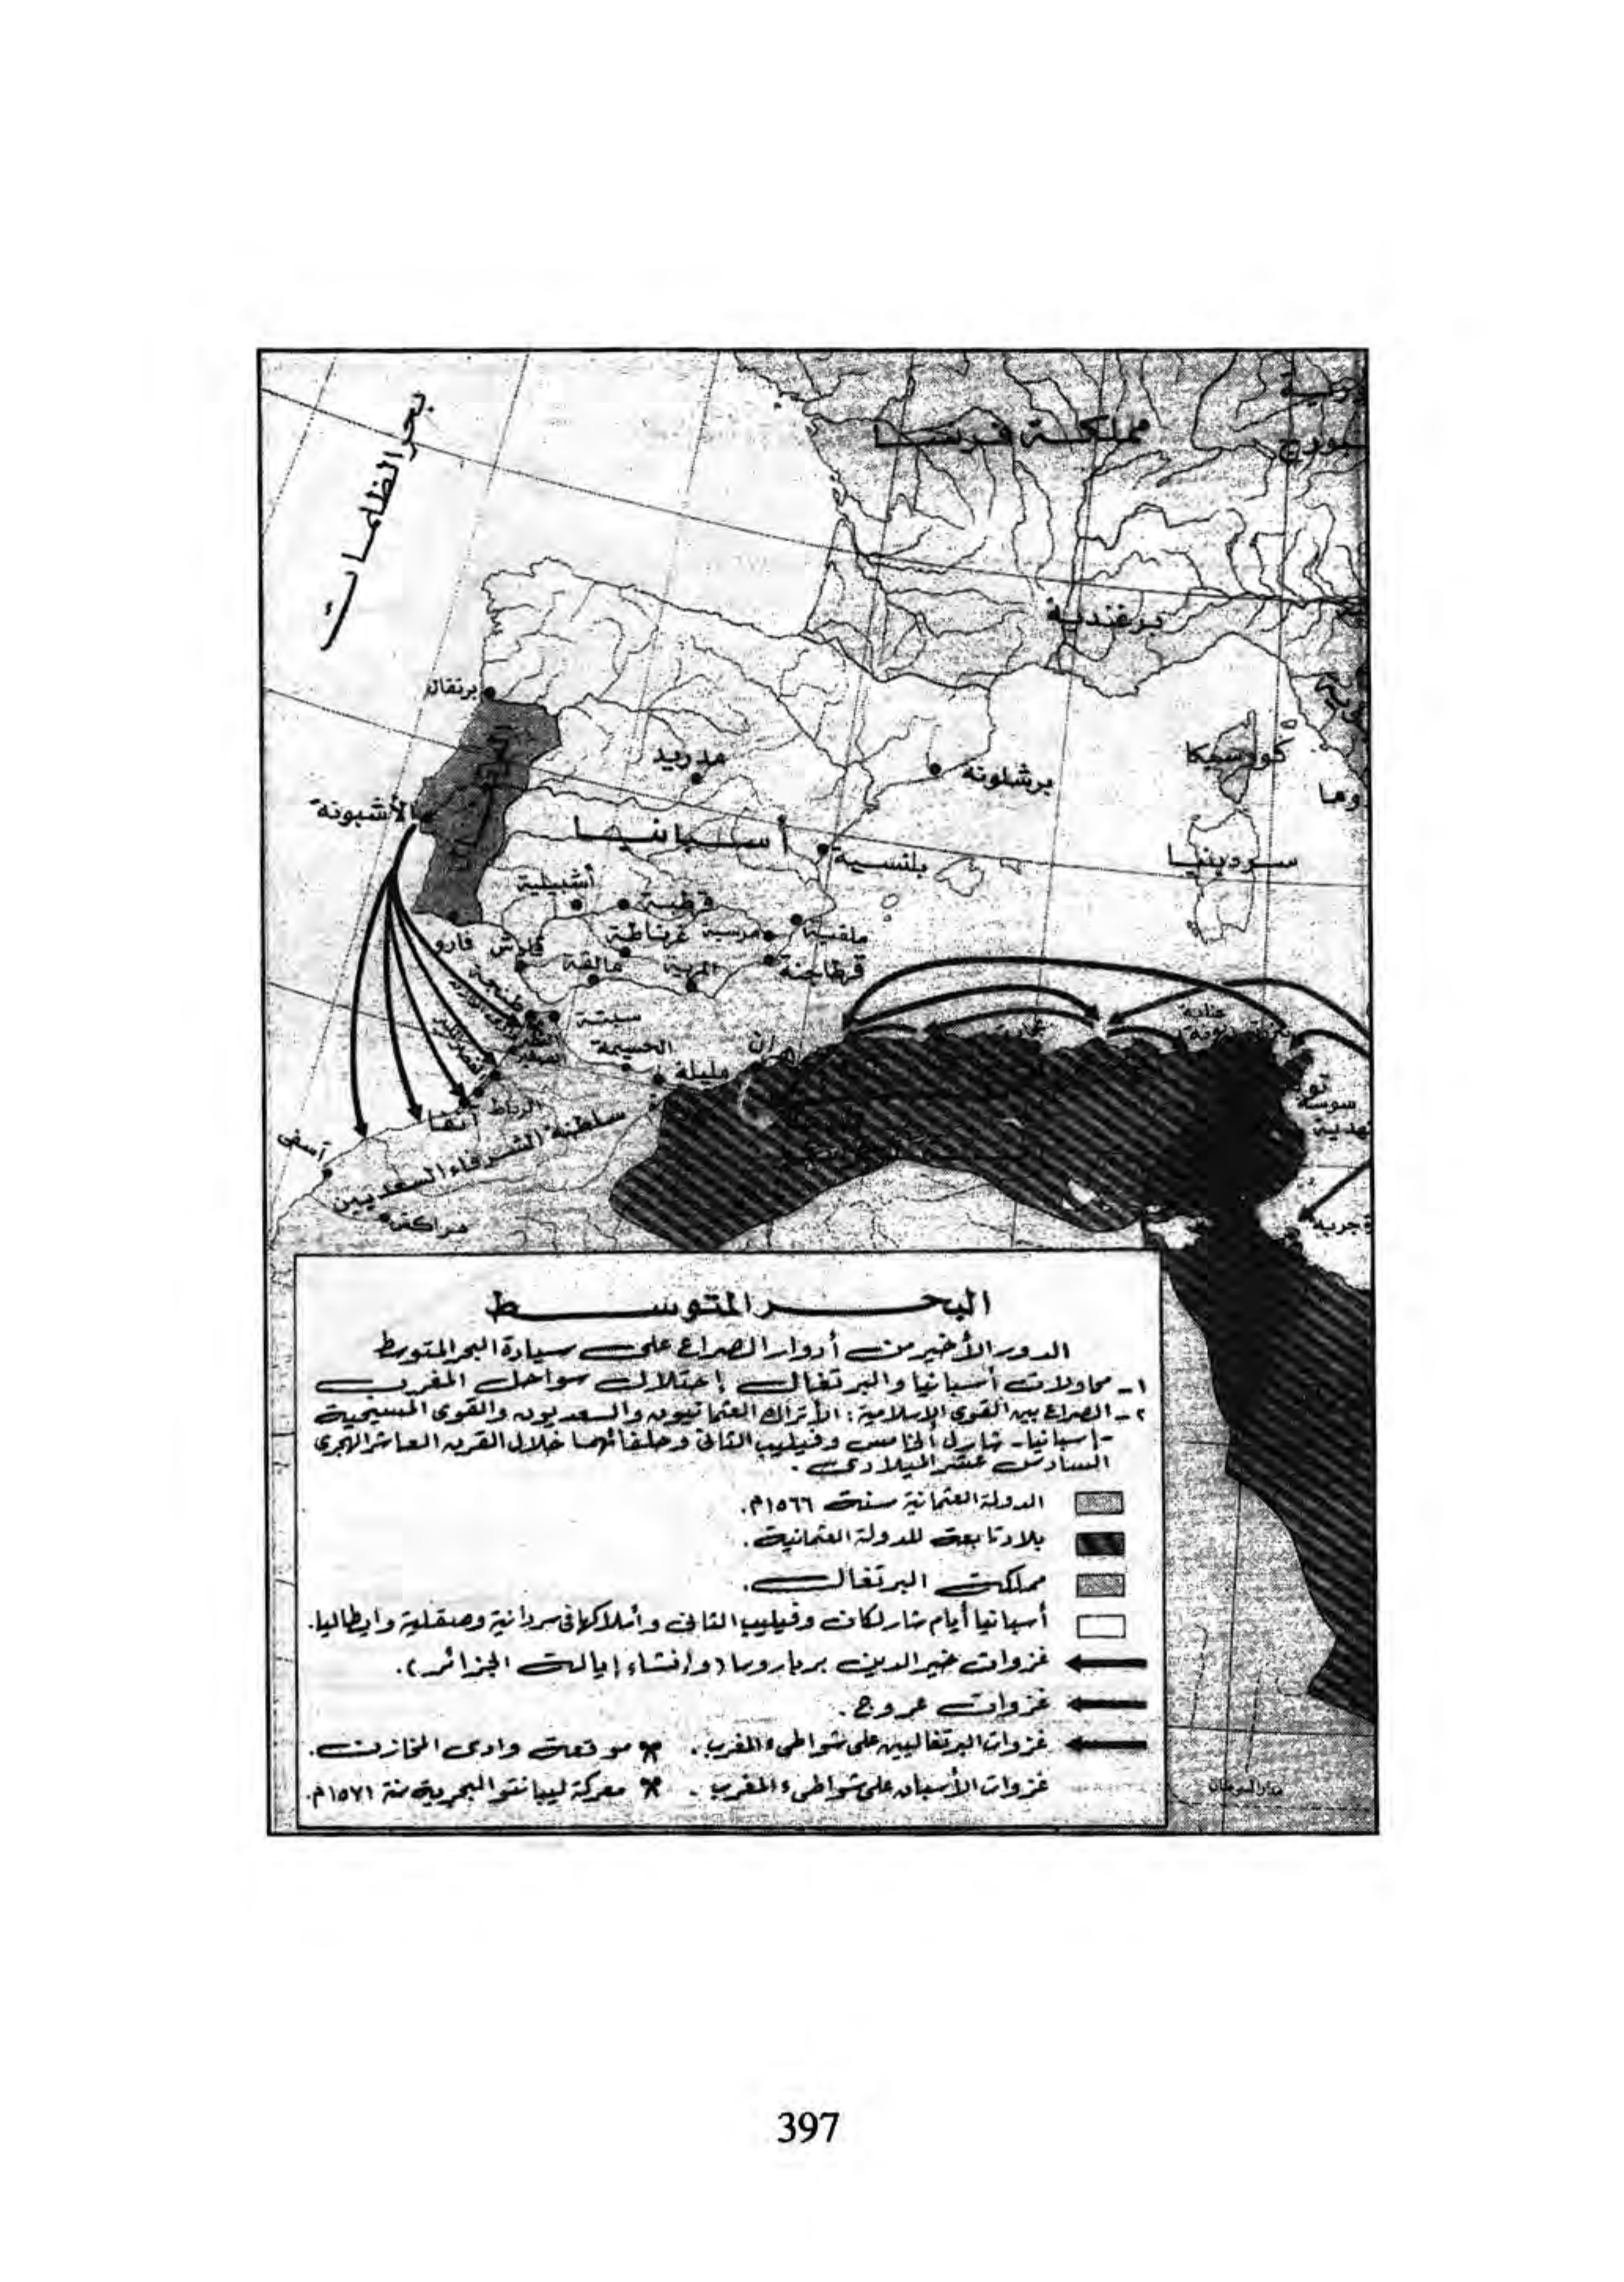 بحر الظلمات
مملكة فرنسا
برغندية
برتقال
مدريد
برشلونة
كورسيكا
الأشبونة
أسبانيا
بلنسية
سردينيا
أشبيلية
قرطبة
فارو
قادس
غرناطة
مرسية
مالقة
المرية
قرطاجنة
سبتة
الحسيمة
مليلة
عنابة
الرباط
أنفا
سوسة
آسفى
سلطنة الشرفاء السعديين
مراكش
جربة
البحر المتوسط
الدور الأخير من أدوار الصراع على سيادة البحر المتوسط
١- محاولات أسبانيا والبرتغال إحتلال سواحل المغرب
٢- الصراع بين القوى الإسلامية: الأتراك العثمانيون والسعديون والقوى المسيحية
-إسبانيا- شارل الخامس وفيليب الثانى وحلفائهما خلال القرن العاشر الهجرى
السادس عشر الميلادى.
الدولة العثمانية سنة ١٥٦٦م.
بلاد تابعة للدولة العثمانية.
مملكة البرتغال.
أسبانيا أيام شارلكان وفيليب الثانى وأملاكها فى سردانية وصقلية وإيطاليا.
غزوات خير الدين برباروسا (وإنشاء إيالة الجزائر).
غزوات عروج.
غزوات البرتغاليين على شواطىء المغرب. موقعة وادى المخازن.
غزوات الأسبان على شواطىء المغرب. معركة ليبانتو البحرية سنة ١٥٧١م.
397